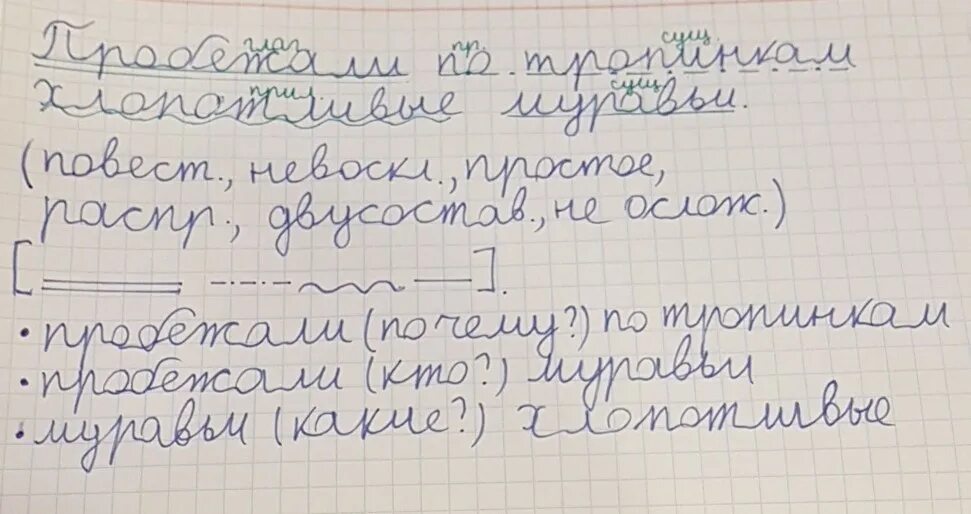 глаг. пр. сущ.
Пробежали по тропинкам
прил. сущ.
хлопотливые муравьи.
(повест., невоскл., простое,
распр., двусостав., не ослож.)
[ ].
• пробежали (по чему?) по тропинкам
• пробежали (кто?) муравьи
• муравьи (какие?) хлопотливые